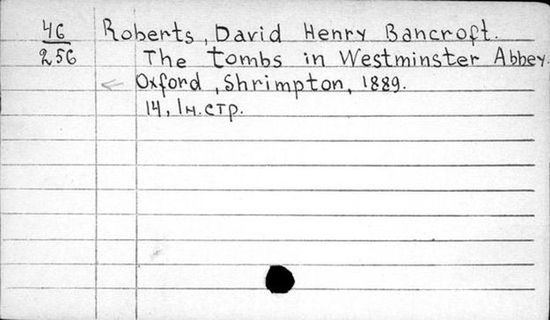 46 Roberts, David Henry Bancroft.
256 The tombs in Westminster Abbey.
Oxford, Shrimpton, 1889.
14, 1н.стр.